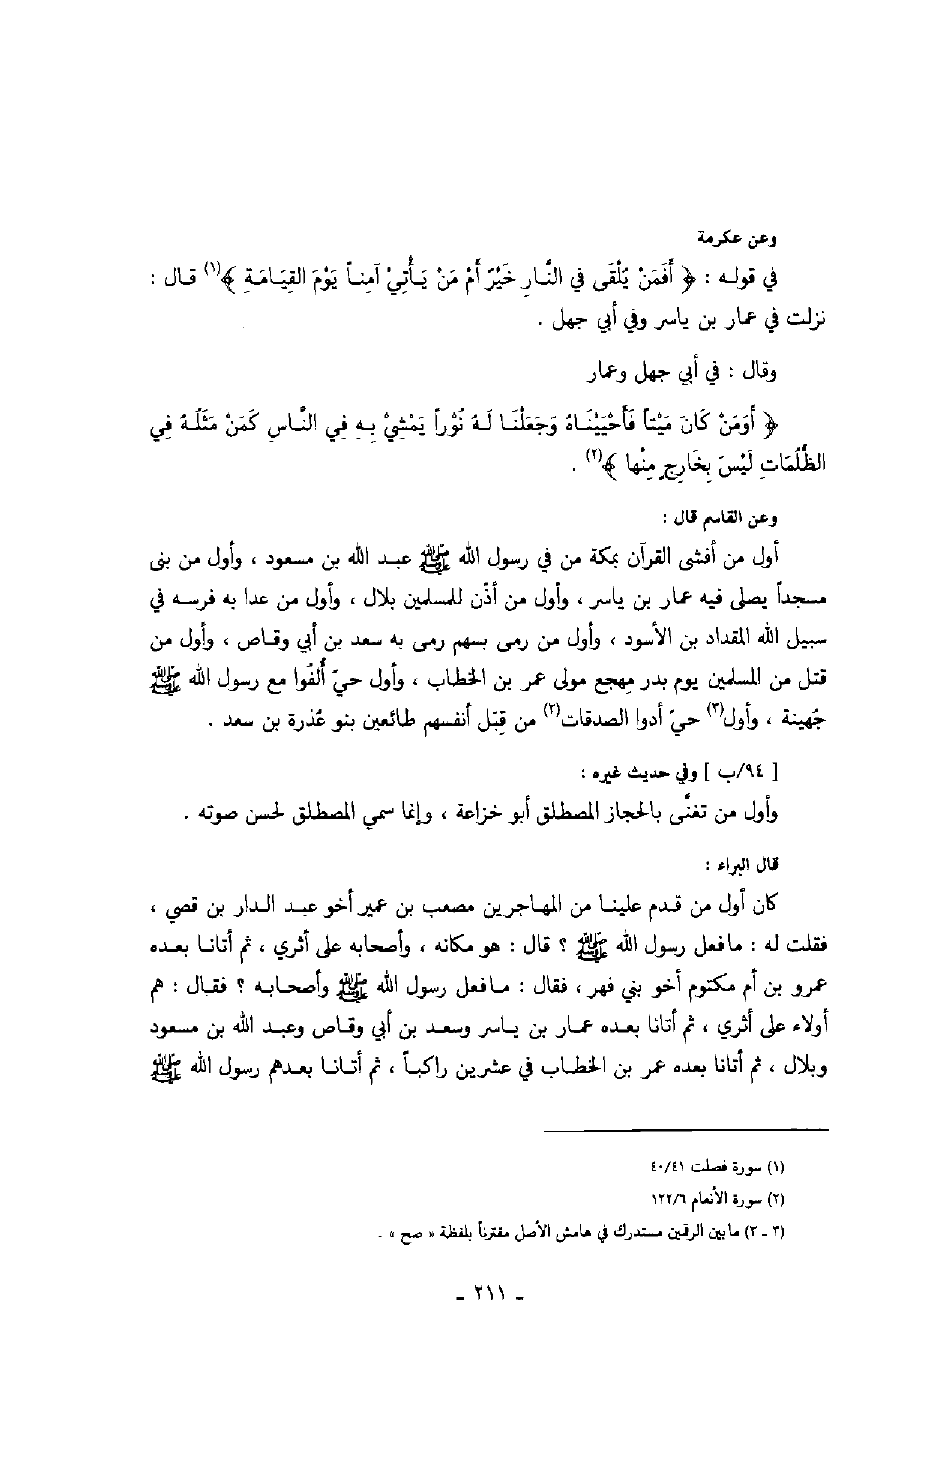 وعن عكرمة
في قوله : ﴿ أَفَمَنْ يُلْقَى في النَّارِ خَيْرٌ أَمْ مَنْ يَأْتِيْ آمِناً يَوْمَ القِيَامَةِ ﴾(١) قال :
نزلت في عمار بن ياسر وفي أبي جهل .
وقال : في أبي جهل وعمار
﴿ أَوَمَنْ كَانَ مَيْتاً فَأَحْيَيْنَاهُ وَجَعَلْنَا لَهُ نُوْراً يَمْشِيْ بِهِ فِي النَّاسِ كَمَنْ مَثَلُهُ فِي
الظُّلُمَاتِ لَيْسَ بِخَارِجٍ مِنْها ﴾(٢) .
وعن القاسم قال :
أول من أفشى القرآن بمكة من في رسول الله ﷺ عبد الله بن مسعود ، وأول من بنى
مسجداً يصلى فيه عمار بن ياسر ، وأول من أذّن للمسلمين بلال ، وأول من عدا به فرسه في
سبيل الله المقداد بن الأسود ، وأول من رمى بسهم رمى به سعد بن أبي وقاص ، وأول من
قتل من المسلمين يوم بدر مِهجع مولى عمر بن الخطاب ، وأول حيّ أَلفُوا مع رسول الله ﷺ
جُهينة ، وأول(٣) حيّ أدوا الصدقات(٣) من قِبَل أنفسهم طائعين بنو عُذرة بن سعد .
[ ٩٤/ب ] وفي حديث غيره :
وأول من تغنَّى بالحجاز المصطلق أبو خزاعة ، وإنما سمي المصطلق لحسن صوته .
قال البراء :
كان أول من قدم علينا من المهاجرين مصعب بن عمير أخو عبد الدار بن قصي ،
فقلت له : مافعل رسول الله ﷺ ؟ قال : هو مكانه ، وأصحابه على أثري ، ثم أتانا بعده
عمرو بن أم مكتوم أخو بني فهر ، فقال : مافعل رسول الله ﷺ وأصحابه ؟ فقال : هم
أولاء على أثري ، ثم أتانا بعده عمار بن ياسر وسعد بن أبي وقاص وعبد الله بن مسعود
وبلال ، ثم أتانا بعده عمر بن الخطاب في عشرين راكباً ، ثم أتانا بعدهم رسول الله ﷺ
(١) سورة فصلت ٤٠/٤١
(٢) سورة الأنعام ١٢٢/٦
(٣ - ٣) مابين الرقمين مستدرك في هامش الأصل مقترناً بلفظة « صح » .
- ٢١١ -